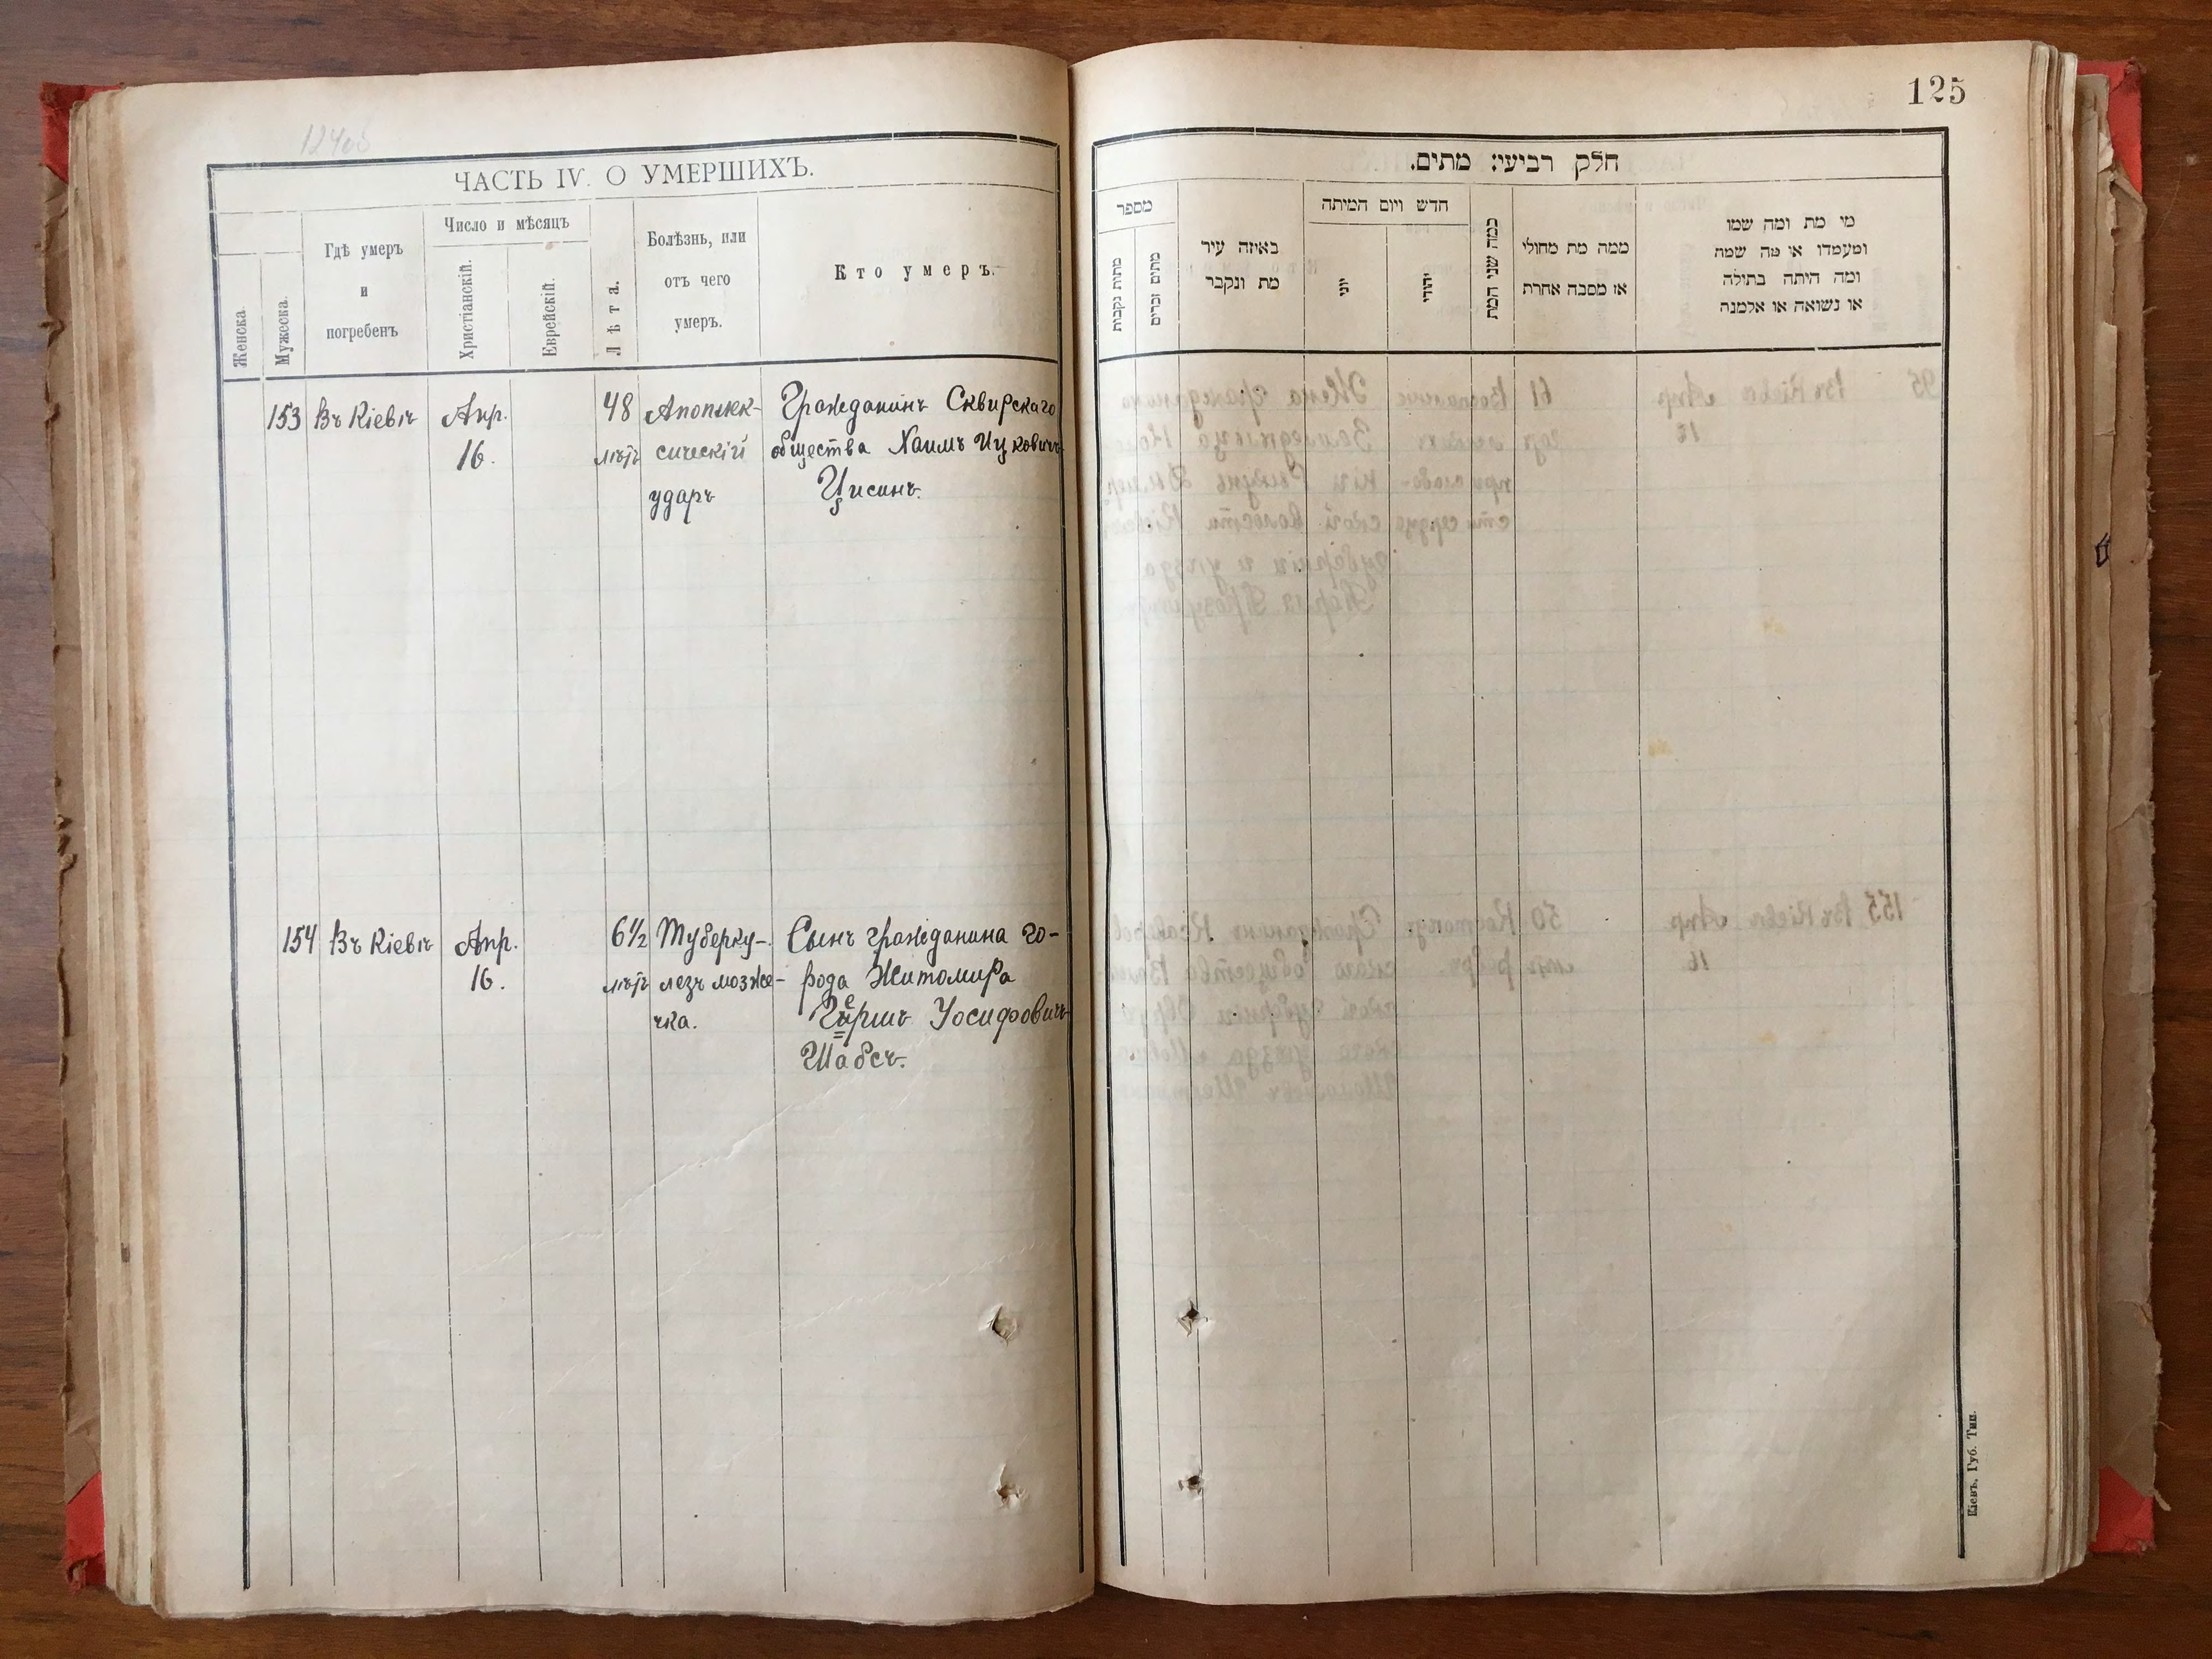 ЧАСТЬ IV. О УМЕРШИХЪ.
Женска.
Мужеска.
Гдѣ умеръ
и
погребенъ
Число и мѣсяцъ
Христіанскій.
Еврейскій.
Лѣта.
Болѣзнь, или
отъ чего
умеръ.
Кто умеръ.
153 Въ Кіевѣ Апр. 48 Апоплек- Гражданинъ Сквирскаго
16. лѣтъ сическій общества Хаимъ Ицковичъ
ударъ Цисинъ.
154 Въ Кіевѣ Апр. 6½ Туберку- Сынъ гражданина го-
16. лѣтъ лезъ мозже- рода Житомира
чка. Гершъ Уосифовичъ
Шабсъ.
125
חלק רביעי: מתים.
מספר
מתות נקבות
מתים זכרים
באיזה עיר
מת ונקבר
חדש ויום המיתה
יוני
יהודי
כמה שני המת
ממה מת מחולי
או מסבה אחרת
מי מת ומה שמו
ומעמדו או מה שמה
ומה היתה בתולה
או נשואה או אלמנה
Кіевъ, Губ. Тип.